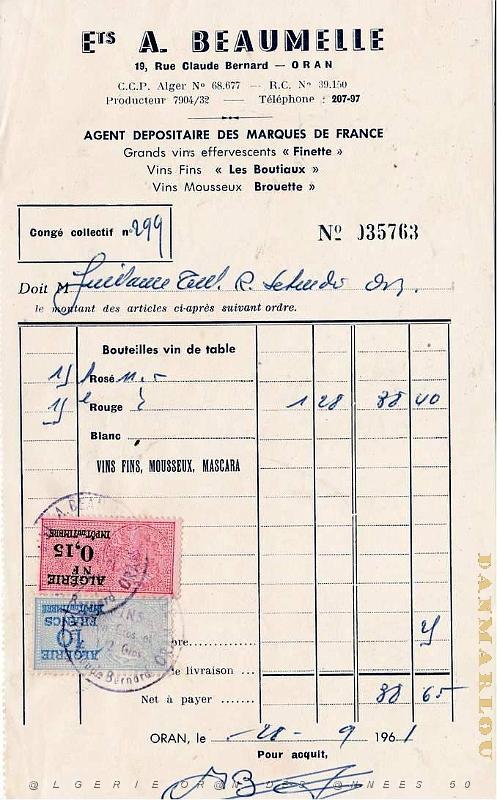 Ets A. BEAUMELLE
19, Rue Claude Bernard — ORAN
C.C.P. Alger No 68.677 — R.C. No 39.150
Producteur 7904/32 — Téléphone : 207-97
AGENT DEPOSITAIRE DES MARQUES DE FRANCE
Grands vins effervescents « Finette »
Vins Fins « Les Boutiaux »
Vins Mousseux Brouette »
Congé collectif no 299
No 035763
Doit M
le montant des articles ci-après suivant ordre.
Bouteilles vin de table
Rosé
Rouge 1 28 88 40
Blanc
VINS FINS, MOUSSEUX, MASCARA
A. BEAU
IMPÔT DU TIMBRE
0,15
NF
ALGÉRIE
ORAN
Bernard
FRANCS
10
ALGÉRIE
Bernard
bre
de livraison
Net à payer 88 65
ORAN, le 28 - 9 1961
Pour acquit,
DANMARLOU
@LGERIE OR@N DES @NNEES 50